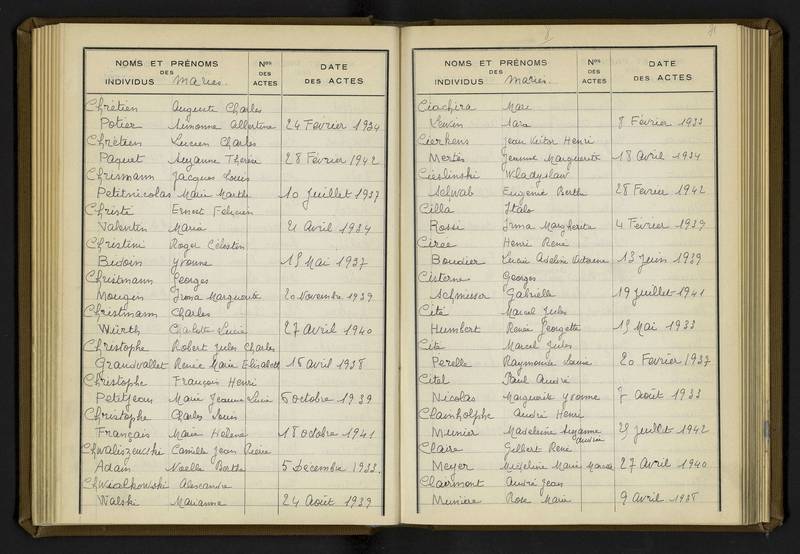 NOMS ET PRÉNOMS
DES
INDIVIDUS Mariés.
Nos
DES
ACTES
DATE
DES ACTES
Chrétien Auguste Charles
Potier Simonne Albertine 24 Février 1934
Chrétien Lucien Charles
Paquet Suzanne Thérèse 28 Février 1942
Chrismann Jacques Louis
Petitnicolas Marie Marthe 10 Juillet 1937
Christé Ernest
Valentin Maria 21 Avril 1934
Christini Roger Célestin
Bidoin Yvonne 15 Mai 1937
Christmann Georges
Mougin Irma Marguerite 20 Novembre 1939
Christmann Charles
Würth Charlotte Lucie 27 Avril 1940
Christophe Robert Jules Charles
Grandvallet Renée Marie Elisabeth 16 Avril 1938
Christophe François Henri
Petitjean Marie Jeanne Lucie 6 Octobre 1939
Christophe Charles Louis
Français Marie Hélène 18 Octobre 1941
Chwaliszewski Camille Jean Pierre
Adam Noelle Berthe 5 Décembre 1933.
Chwialkowski Alexandre
Walski Marianne 24 Août 1939
NOMS ET PRÉNOMS
DES
INDIVIDUS Mariés.
Nos
DES
ACTES
DATE
DES ACTES
Ciachera Marc
Sara 8 Février 1933
Cierkens Jean Victor Henri
Mertés Jeanne Marguerite 18 Avril 1934
Cieslinski Wladyslaw
Schwab Eugénie Berthe 28 Février 1942
Cilla Italo
Rossi Irma Margherita 4 Février 1939
Cirée Henri René
Boudier Lucie Adeline Victorine 13 Juin 1939
Cisterne Georges
Gabrielle 19 Juillet 1941
Cité Marcel Jules
Humbert Renée Georgette 13 Mai 1933
Cité Marcel Jules
Perelle Raymonde Louise 20 Février 1937
Citel Paul André
Nicolas Marguerite Yvonne 7 Août 1933
Clainholphe André Henri
Munier Madeleine Suzanne Andrée 29 Juillet 1942
Claire Gilbert René
Meyer Madeleine Marie 27 Avril 1940
Clairmont André Jean
Munière Rose Marie 9 Avril 1938